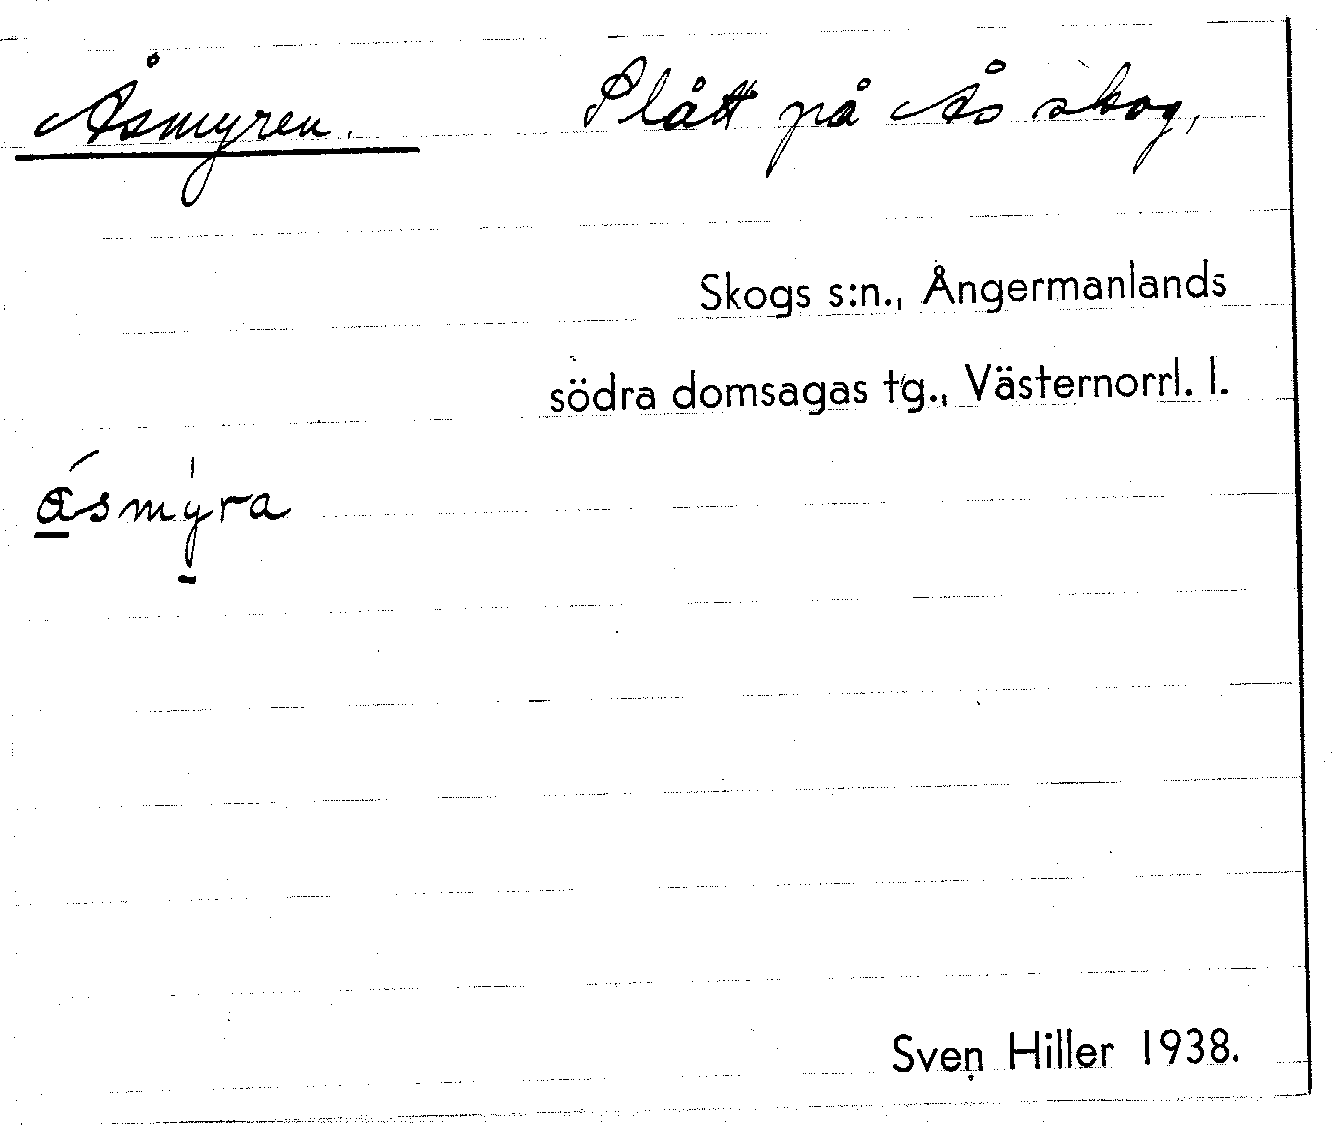 Åsmyren. Slått på Ås skog,
Skogs s:n., Ångermanlands
södra domsagas tg., Västernorrl. l.
Sven Hiller 1938.